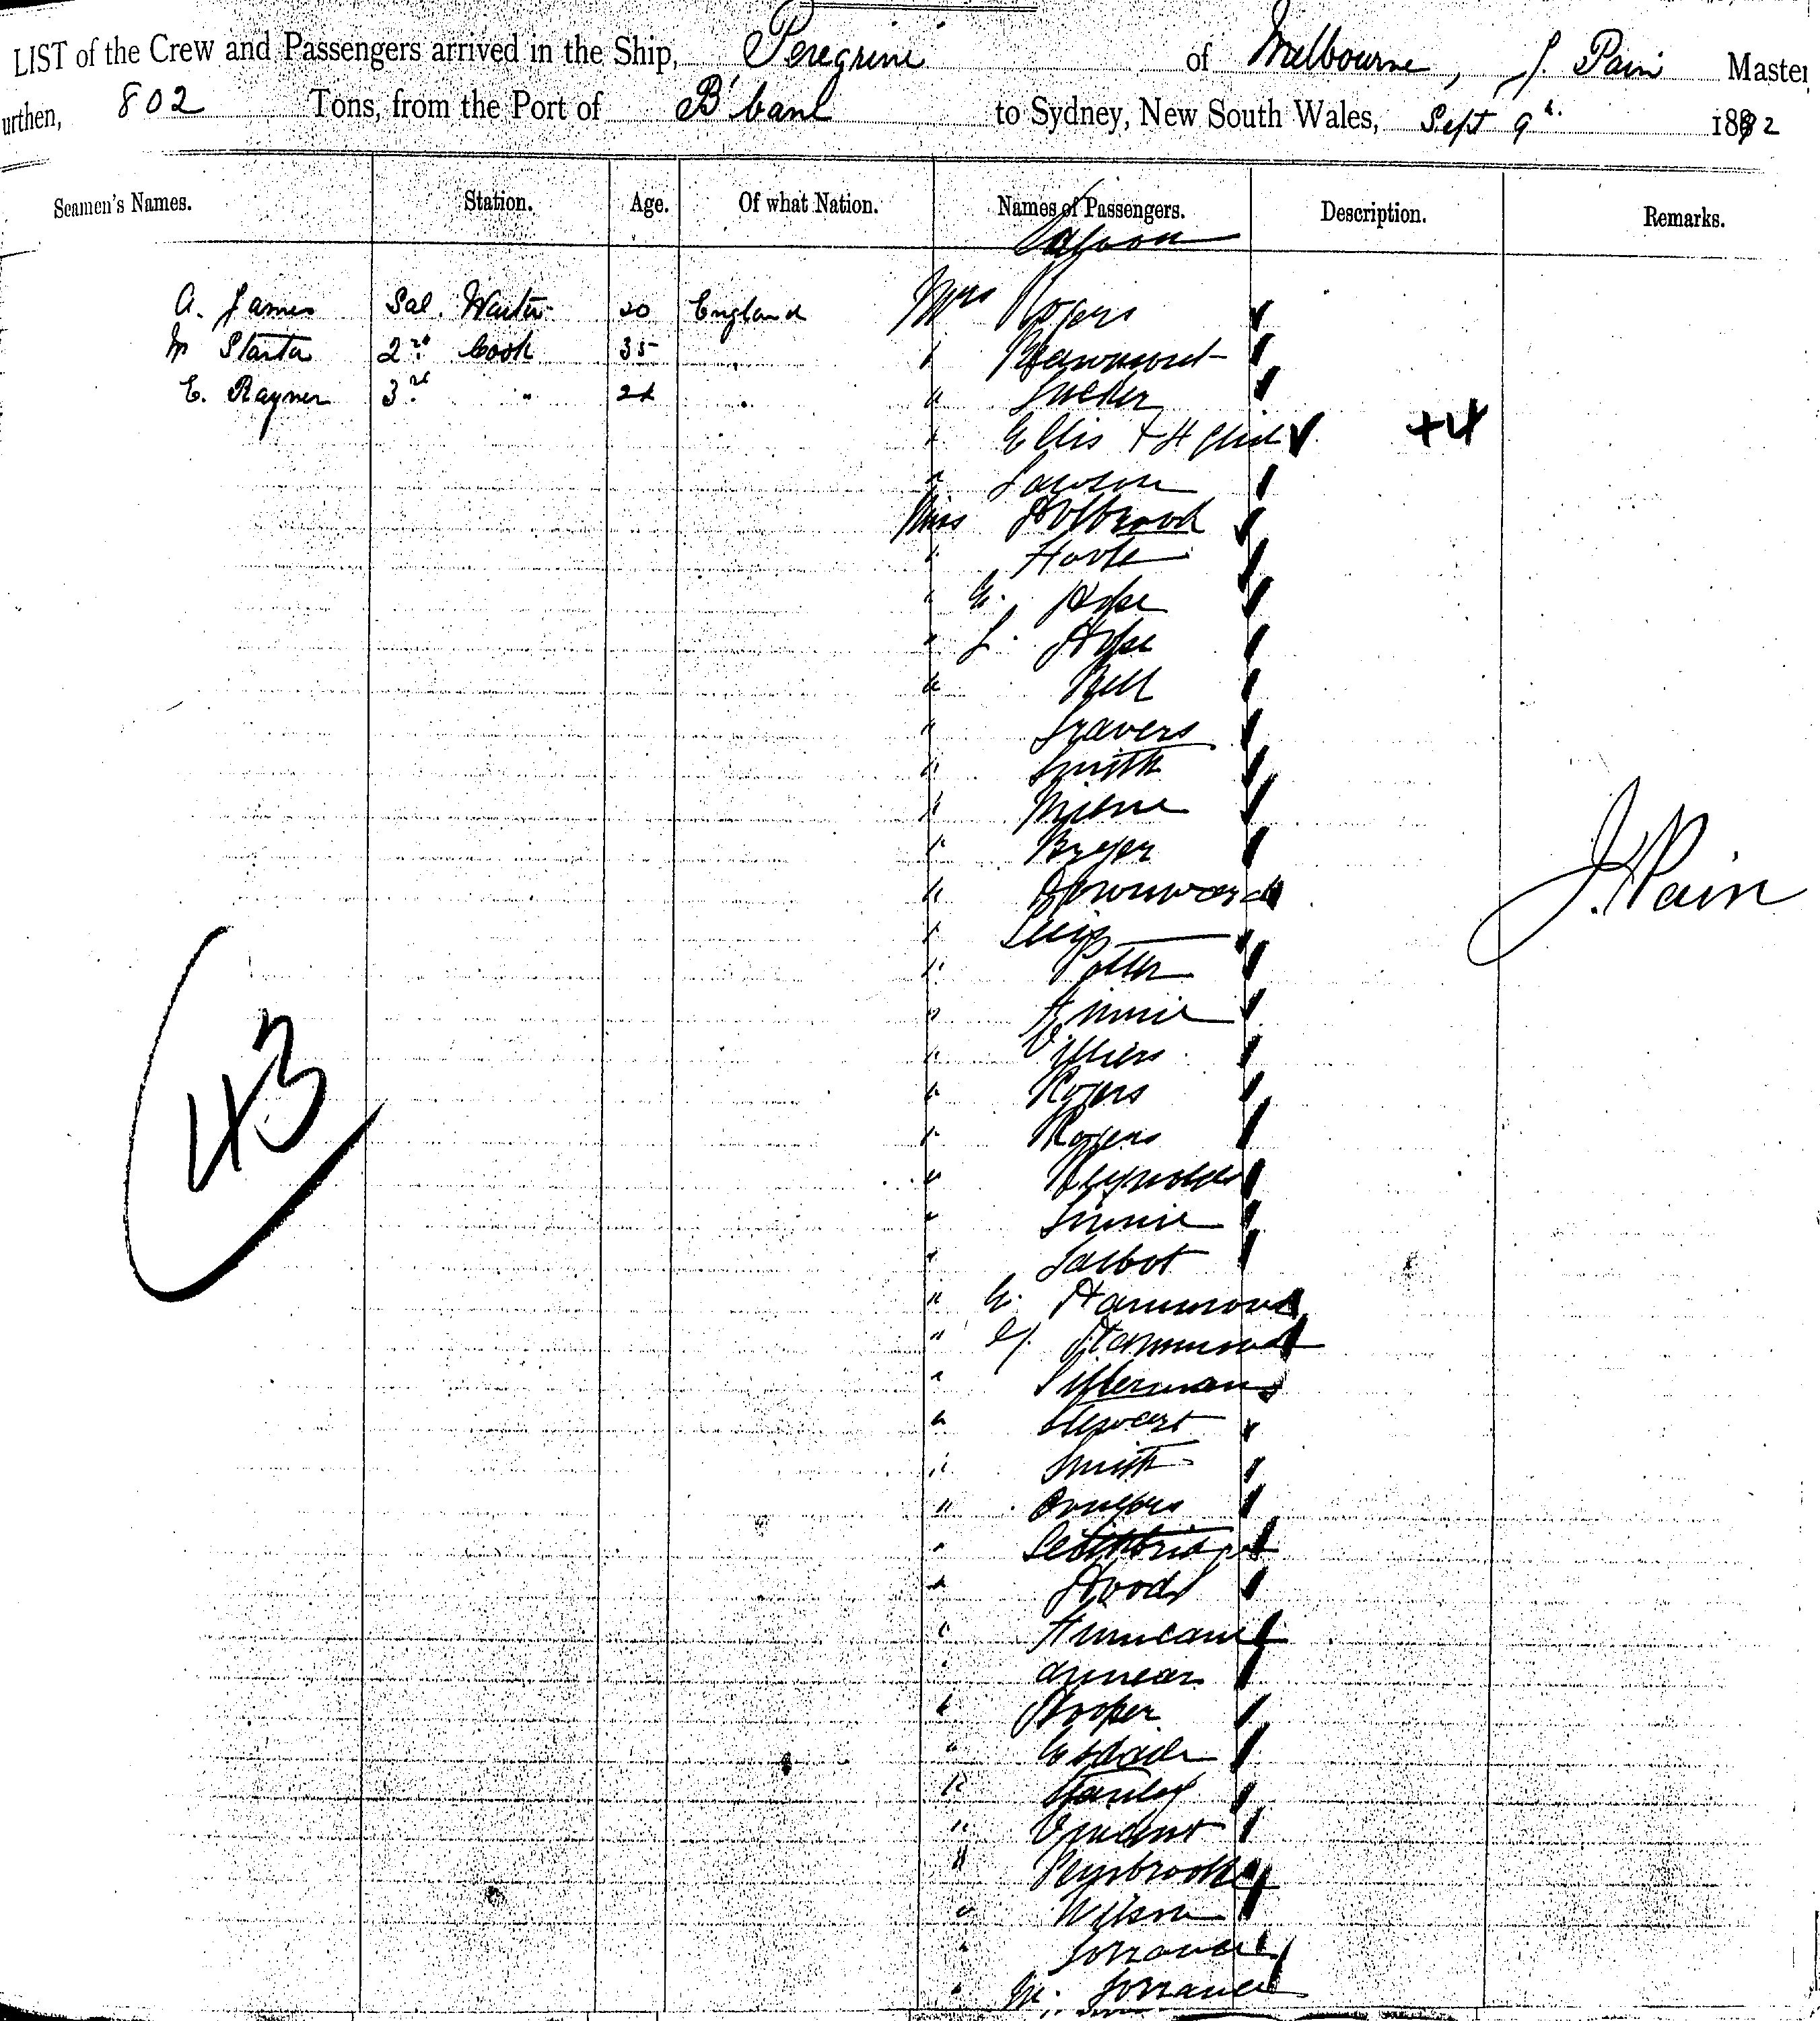 LIST of the Crew and Passengers arrived in the Ship, Peregrine of Melbourne, J. Pain Master
urthen, 802 Tons, from the Port of B'bane to Sydney, New South Wales, Sept 9th. 1892
Seamen's Names. Station. Age. Of what Nation. Names of Passengers. Description. Remarks.
Saloon
A. James Sal. Waiter 20 England Mrs Rogers
2nd Cook 35 " Hammond
E. Rayner 3rd " "
" Ellis + 4 Child +4
" Lawson
Miss Holbrook
"
" E. Hope
" L. Hope
" Bell
" Travers
" Smith
" Milne
"
" Downward
"
" Potter
"
" Villiers
" Rogers
" Rogers
" Reynolds
"
" Talbot
" E. Hammond
" Hammond
" Silberman
" Stewart
" Smith
"
"
" Hood
"
" Annear
" Hooper
" Esdaile
" Stanley
" Vincent
"
" Wilson
" Torrance
" M. Torrance
J. Pain
43